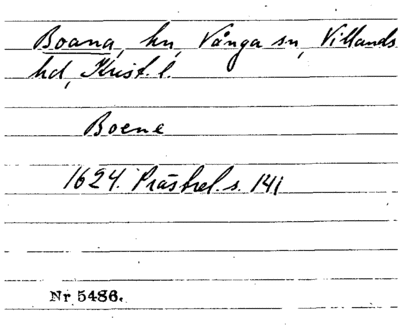 Boana, hn, Vånga sn, Villands
hd, Krist. l.
Boene
1624. Prästrel. s. 141
Nr 5486.